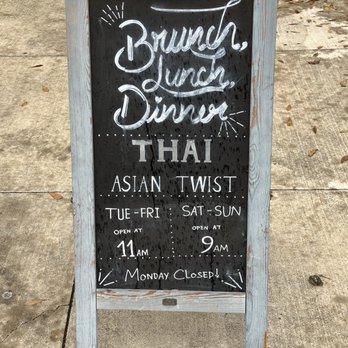 Brunch,
Lunch,
Dinner
THAI
ASIAN TWIST
TUE-FRI SAT-SUN
OPEN AT OPEN AT
11AM 9AM
MONDAY CLOSED!